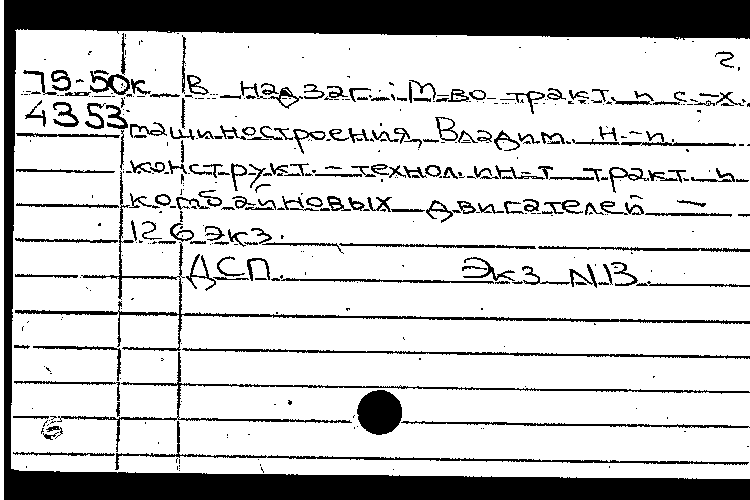 2.
79-50к В надзаг.: М-во тракт. и с.-х.
4353 машиностроения, Владим. н.-и.
конструкт.-технол. ин-т тракт. и
комбайновых двигателей -
126 экз.
ДСП. Экз N13.
б